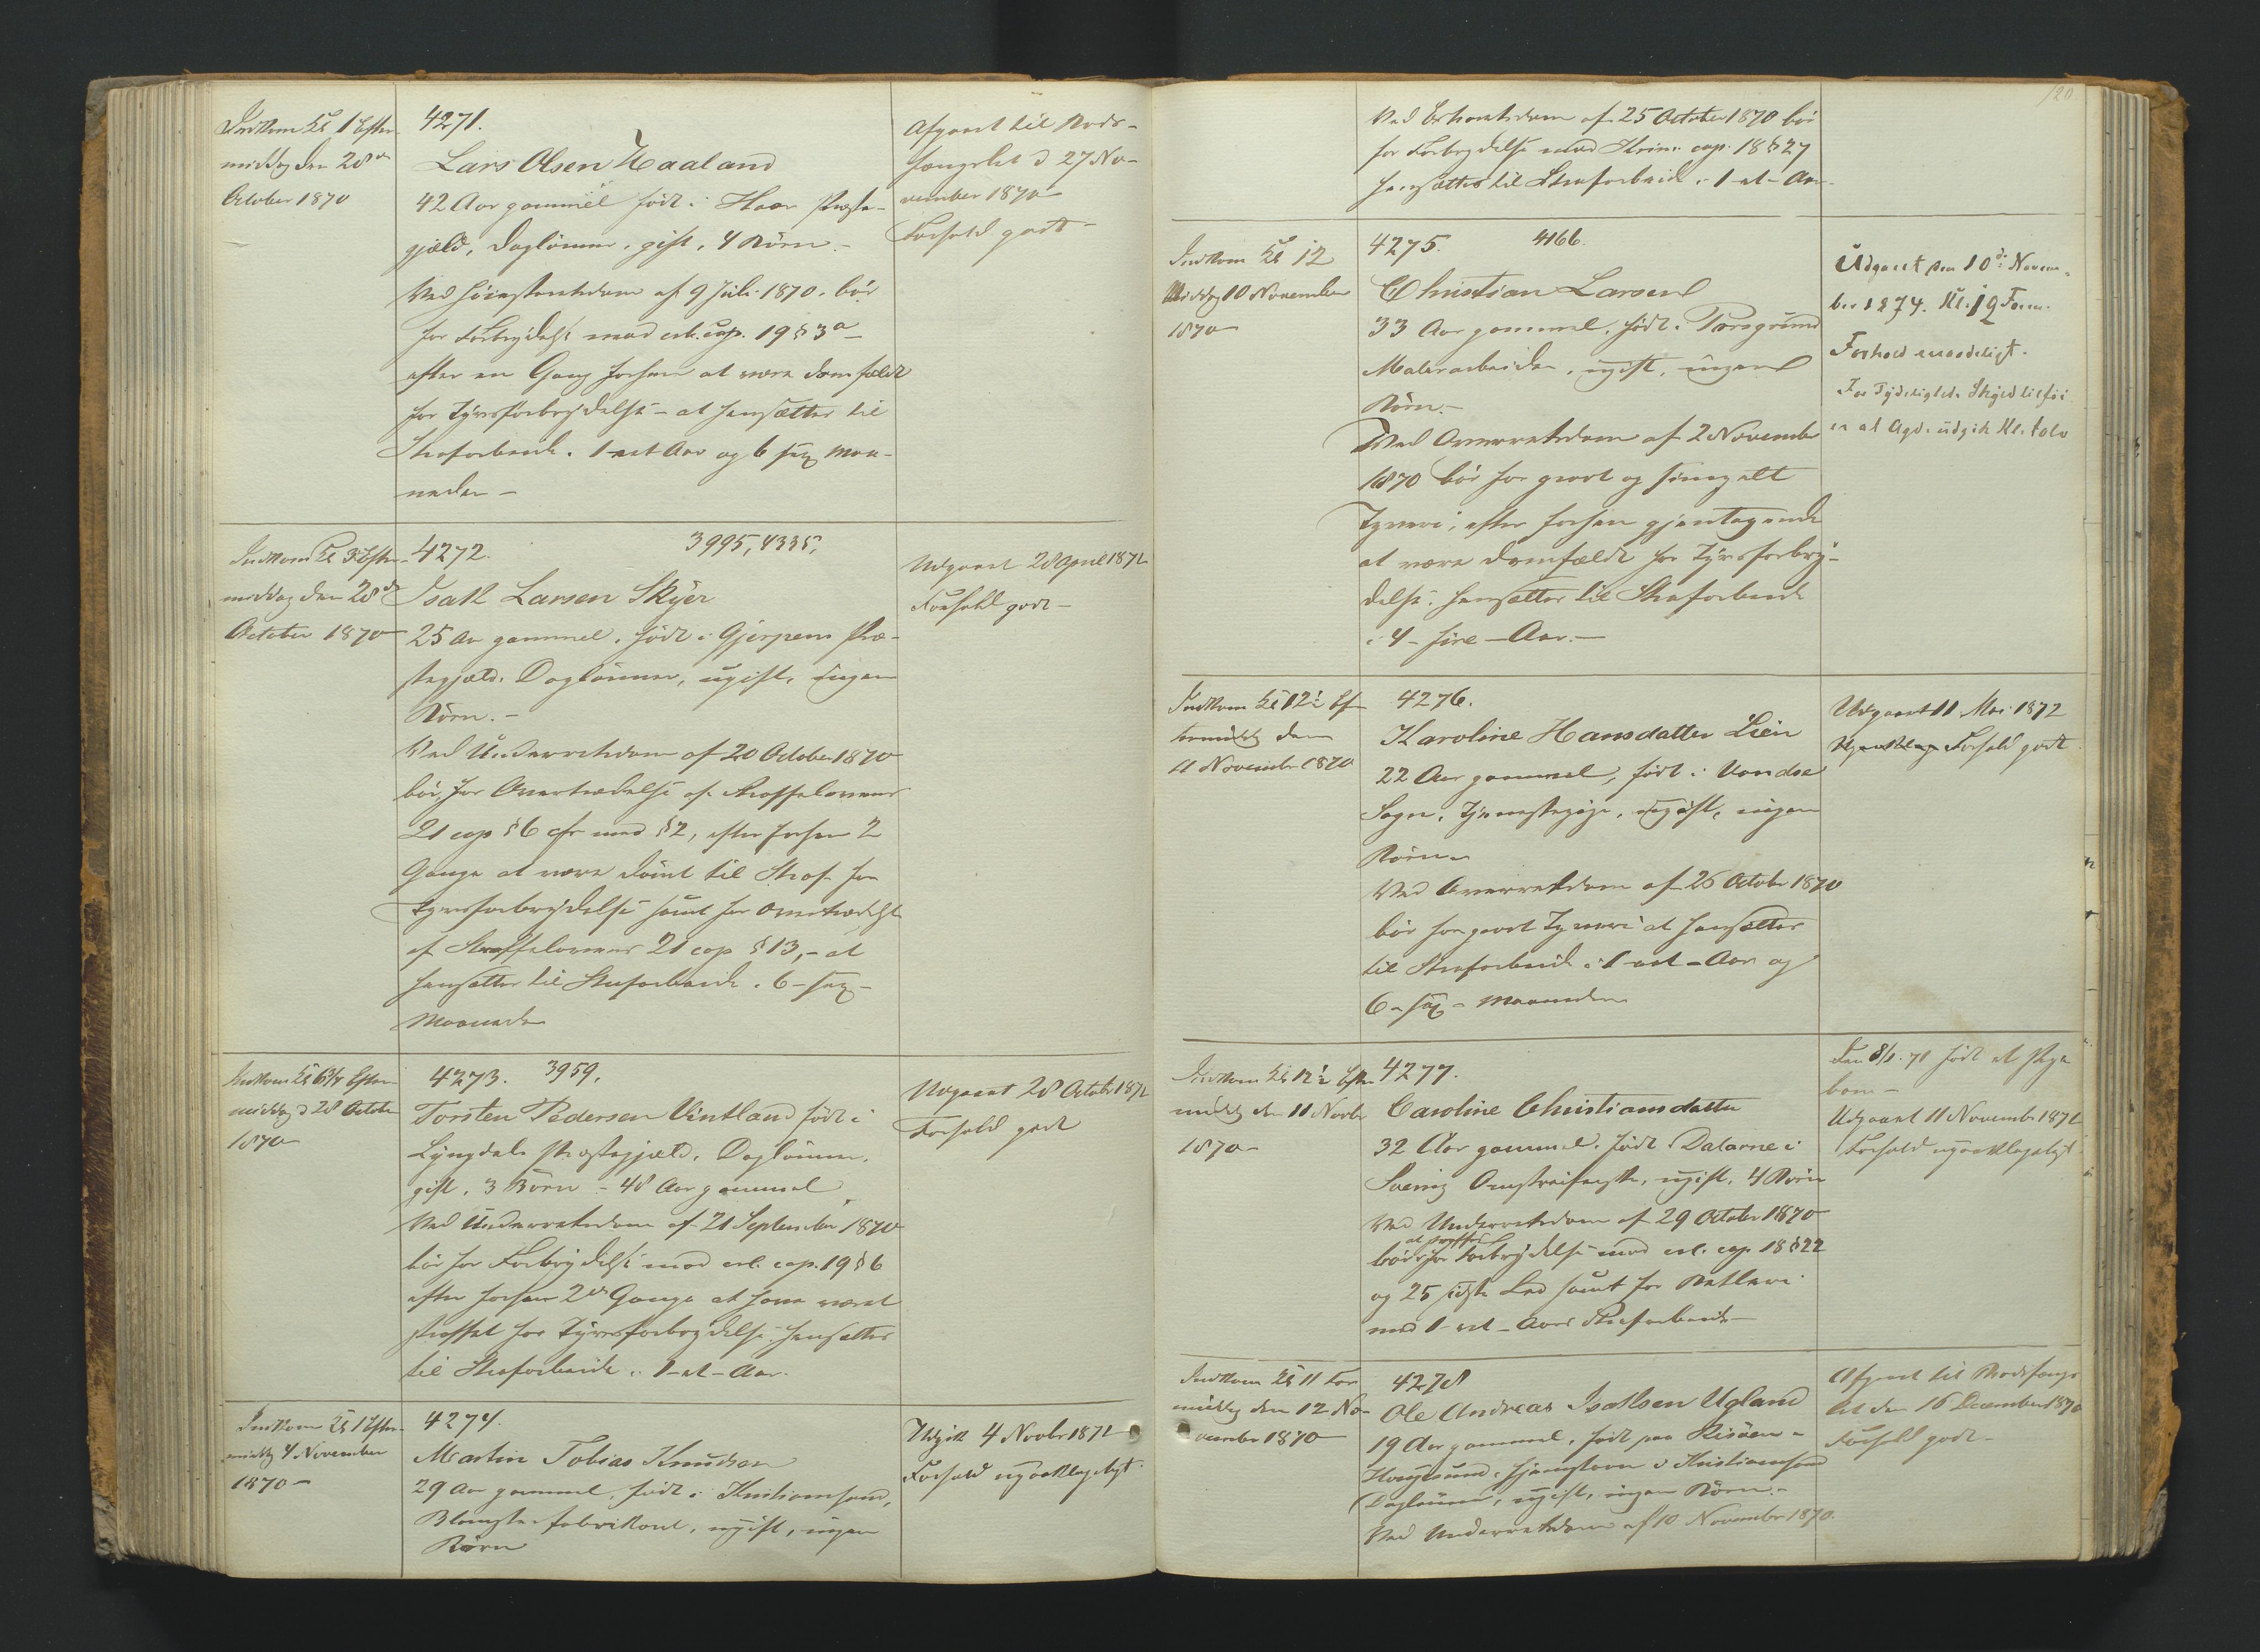 Indkom Kl 1 Efter-
middag den 28de
October 1870
4271.
Lars Olsen Haaland
42 Aar gammel født i Haae Præste-
gjeld, Daglönner, gift, 4 Börn.-
Ved Höiesteretsdom af 9 Juli 1870. bör
for Forbrydelse mod crl. cap. 19 § 3 a -
efter en Gang forhen at være domfældt
for Tyvsforbrydelse - at hensættes til
Strafarbeide i 1 - et Aar og 6 sex Maa-
neder -
Afgaaet til Bods-
fængslet d 27 No-
vember 1870
Forhold godt -
Indkom Kl 3 Efter-
middag den 28de
October 1870
4272.
3995, 4335,
Isak Larsen Skyer
25 Aar gammel, født i Gjerpens Præ-
stegjæld. Daglönner, ugift, ingen
Börn. -
Ved Underretsdom af 20 October 1870
bör, for Overtrædelse af Straffelovens
21 cap § 6 cfr med § 2, efter forhen 2
Gange at være dömt til Straf for
Tyvsforbrydelse samt for Overtrædelse
af Straffelovens 21 cap § 13, - at
hensættes til Strafarbeide i 6 - sex -
Maaneder
Udgaaet 28 April 1871
Forhold godt -
Indkom Kl 6 3/4 Efter-
middag d 28 October
1870
4273. 3959.
Torsten Pedersen Vintland født i
Lyngdals Præstegjæld. Daglönner,
gift, 3 Börn - 48 Aar gammel
Ved Underretsdom af 21 September 1870
bör for Forbrydelse mod crl. cap. 19 § 6
efter forhen 2de Gange at have været
straffet for Tyvsforbrydelse hensættes
til Strafarbeide i 1 - et - Aar.
Udgaaet 28 October 1871
Forhold godt
Indkom Kl 1 Efter-
middag 4 November
1870 -
4274.
Martin Tobias Knudsen
29 Aar gammel, født i Kristiansand,
Blomsterfabrikant, ugift, ingen
Börn
Udgik 4 Novbr 1871
Forhold upaaklageligt.
120.
Ved Extraretsdom af 25 October 1870 bör
for Forbrydelse mod Krim: cap. 18 § 27
hensættes til Strafarbeide i 1 - et - Aar
Indkom Kl 12
Middag 10 November
1870
4275. 4166.
Christian Larsen
33 Aar gammel, født i Porsgrund
Malerarbeider, ugift, ingen
Börn. -
Ved Overretsdom af 2 November
1870 bör for grovt og simpelt
Tyveri, efter forhen gjentagende
at være domfældt for Tyvsforbry-
delse, hensættes til Strafarbeide
i 4 - fire - Aar. -
Udgaaet den 10de Novem-
ber 1874. Kl. 12 Form.
Forhold maadeligt.
For Tydeligheds Skyld tilföi
es at Agd. udgik Kl. tolv
Indkom Kl 12½ Ef-
termiddag den
11 November 1870
4276.
Karoline Hansdatter Lien
22 Aar gammel, født i Vandse
Sogn, Tjenestepige, ugift, ingen
Börn
Ved Overretsdom af 26 October 1870
bör for grovt Tyveri at hensættes
til Strafarbeide i 1 - et - Aar og
6 - sex - Maaneder
Udgaaet 11 Mai 1872
Forhold godt
Indkom Kl 12½ Efter-
middag den 11 Novbr
1870 -
4277.
Caroline Christiansdatter
32 Aar gammel, født Dalarne i
Sverig Omstreiferske, ugift, 4 Börn
Ved Underretsdom af 29 October 1870
at straffes
bör for Forbrydelse mod crl. cap. 18 § 22
og 25 sidste Led samt for Betleri
med 1 - et - Aars Strafarbeide
Den 8/1. 71 født et Pige
barn -
Udgaaet 11 November 1871
Forhold upaaklageligt
Indkom Kl 11 For
middag den 12 No-
vember 1870
4278
Ole Andreas Isaksen Ugland
19 Aar gammel, født paa Risöen -
hjemstavn i Kristiansand
Daglönner, ugift, ingen Börn. -
Ved Underretsdom af 10 November 1870.
Afgaaet til Bodsfængs
let den 16 December 1870
Forhold godt -